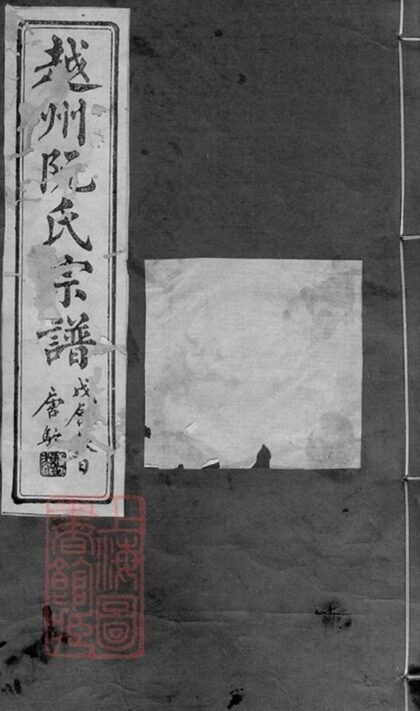 越州阮氏宗譜
戊
唐馱
上海圖
書館藏